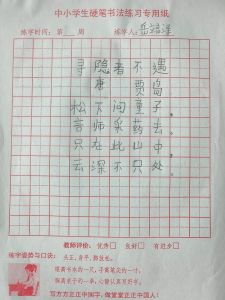 中小学生硬笔书法练习专用纸
练字时间：第 周 练字人：
寻隐者不遇
唐 贾岛
松下问童子，
言师采药去。
只在此山中，
云深不只处。
教师评价：优秀□ 良好□ 有进步□
练字姿势与口诀：
头正，身平，脚放松。
眼离书本约一尺，手离笔尖约一寸，
胸离桌子约一拳，心静认真写好字。
写方方正正中国字，做堂堂正正中国人！